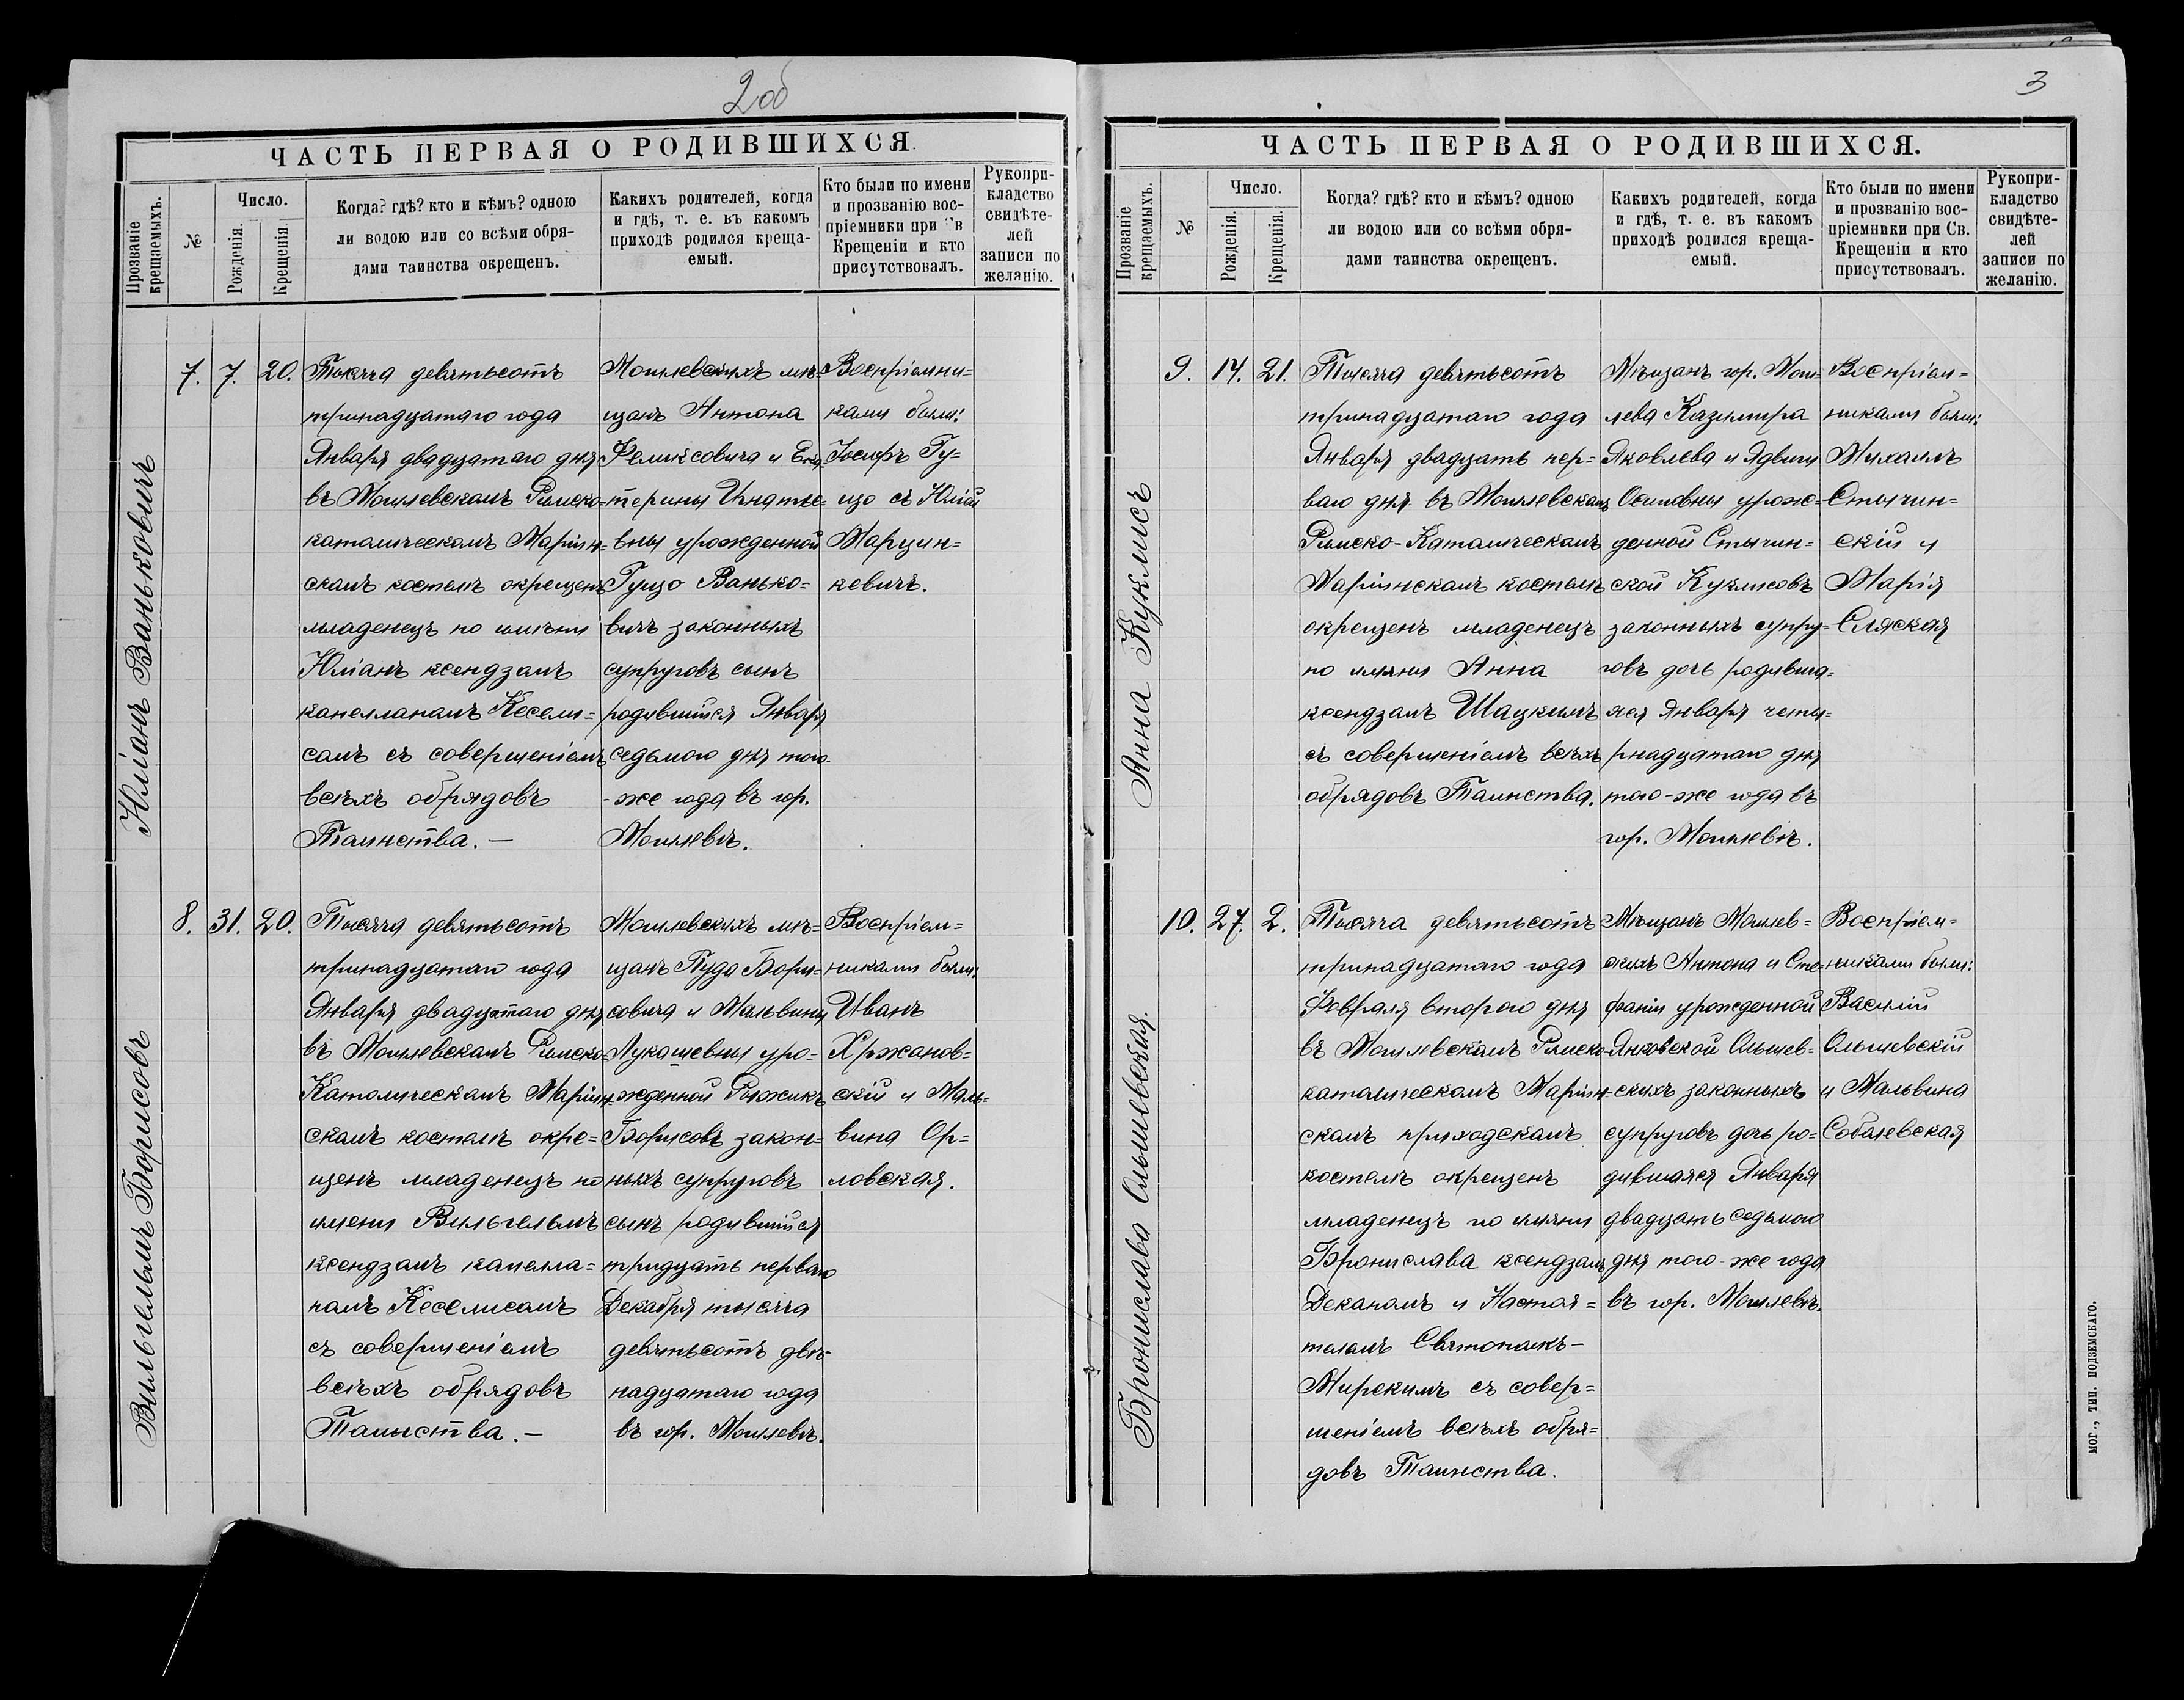 2об
ЧАСТЬ ПЕРВАЯ О РОДИВШИХСЯ.
Прозваніе
крещаемыхъ.
№
Число.
Рожденія.
Крещенія
Когда? гдѣ? кто и кѣмъ? одною
ли водою или со всѣми обря-
дами таинства окрещенъ.
Какихъ родителей, когда
и гдѣ, т. е. въ какомъ
приходѣ родился креща-
емый.
Кто были по имени
и прозванію вос-
пріемники при Св
Крещеніи и кто
присутствовалъ.
Рукопри-
кладство
свидѣте-
лей
записи по
желанію.
Юліанъ Ваньковичъ
7.
7.
20.
Тысяча девятьсотъ
тринадцатаго года
Января двадцатаго дня
въ Могилевскомъ Римско-
католическомъ Маріин-
скомъ костелѣ окрещенъ
младенецъ по имени
Юліанъ ксендзомъ
капелланомъ Кесели-
сомъ съ совершеніемъ
всѣхъ обрядовъ
Таинства. —
Могилевскихъ мѣ-
щанъ Антона
Феликсовича и Ека-
терины Игнатье-
вны урожденной
Гуцо Ванько-
вичъ законныхъ
супруговъ сынъ
родившійся Января
седьмого дня того-
-же года въ гор.
Могилевѣ.
Воспріемни=
ками были:
Іосифъ Гу=
цо съ Юліей
Марцин=
кевичъ.
Вильгельмъ Борисовъ
8.
31.
20.
Тысяча девятьсотъ
тринадцатаго года
Января двадцатаго дня
въ Могилевскомъ Римско-
Католическомъ Маріин-
скомъ костелѣ окре=
щенъ младенецъ по
имени Вильгельмъ
ксендзомъ капелла=
номъ Кеселисомъ
съ совершеніемъ
всѣхъ обрядовъ
Таинства. —
Могилевскихъ мѣ=
щанъ Пуда Бори=
совича и Мальвины
Лукашевны уро-
жденной Рыжикъ
Борисовъ закон=
ныхъ супруговъ
сынъ родившійся
тридцать перваго
Декабря тысяча
девятьсотъ двѣ-
надцатаго года
въ гор. Могилевѣ.
Воспріем=
никами были:
Иванъ
Хржанов=
скій и Маль=
вина Ор=
ловская.
3
ЧАСТЬ ПЕРВАЯ О РОДИВШИХСЯ.
Прозваніе
крещаемыхъ.
№
Число.
Рожденія.
Крещенія.
Когда? гдѣ? кто и кѣмъ? одною
ли водою или со всѣми обря-
дами таинства окрещенъ.
Какихъ родителей, когда
и гдѣ, т. е. въ какомъ
приходѣ родился креща-
емый.
Кто были по имени
и прозванію вос-
пріемники при Св.
Крещеніи и кто
присутствовалъ.
Рукопри-
кладство
свидѣте-
лей
записи по
желанію.
Анна Куклисъ
9.
14.
21.
Тысяча девятьсотъ
тринадцатаго года
Января двадцать пер=
ваго дня въ Могилевскомъ
Римско-Католическомъ
Маріинскомъ костелѣ
окрещенъ младенецъ
по имени Анна
ксендзомъ Шацкимъ
съ совершеніемъ всѣхъ
обрядовъ Таинства.
Мѣщанъ гор. Моги=
лева Казимира
Яковлева и Ядвиги
Осиповны урож=
денной Стычин=
ской Куклисовъ
законныхъ супру=
говъ дочь родивша=
яся Января четы=
рнадцатаго дня
того-же года въ
гор. Могилевѣ.
Воспріем=
никами были:
Михаилъ
Стычин=
скій и
Марія
Сляская
Бронислава Ольшевская.
10.
27.
2.
Тысяча девятьсотъ
тринадцатаго года
Февраля второго дня
въ Могилевскомъ Римско-
католическомъ Маріин-
скомъ приходскомъ
костелѣ окрещенъ
младенецъ по имени
Бронислава ксендзомъ
Деканомъ и Настоя=
телемъ Святополкъ-
Мирскимъ съ совер=
шеніемъ всѣхъ обря=
довъ Таинства.
Мѣщанъ Могилев=
скихъ Антона и Сте=
фаніи урожденной
Янковской Ольшев=
скихъ законныхъ
супруговъ дочь ро-
дившаяся Января
двадцать седьмого
дня того-же года
въ гор. Могилевѣ.
Воспріем=
никами были:
Василій
Ольшевскій
и Мальвина
Соболевская
МОГ., ТИП. ПОДЗЕМСКАГО.